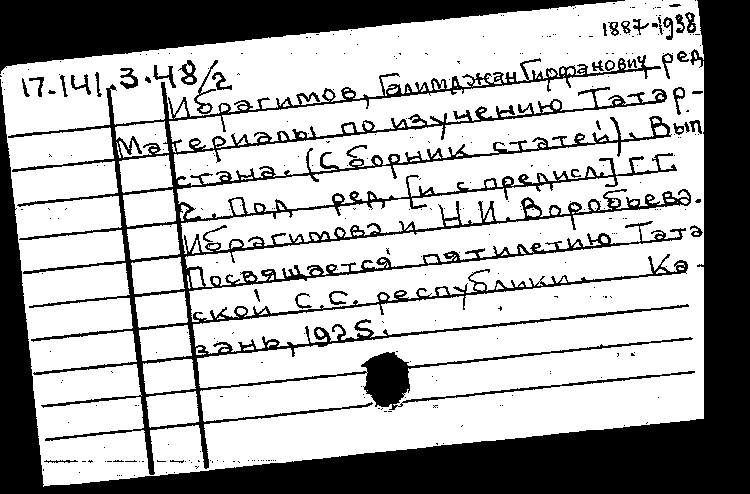 1887-1938
17.141.3.48/2
Ибрагимов, Галимджан Гирфанович, ред
Материалы по изучению Татар-
стана. (Сборник статей). Вып
2. Под ред. [и с предисл.] Г.Г.
Ибрагимова и Н.И. Воробьева.
Посвящается пятилетию Тата
ской С.С. республики. Ка-
зань, 1925.